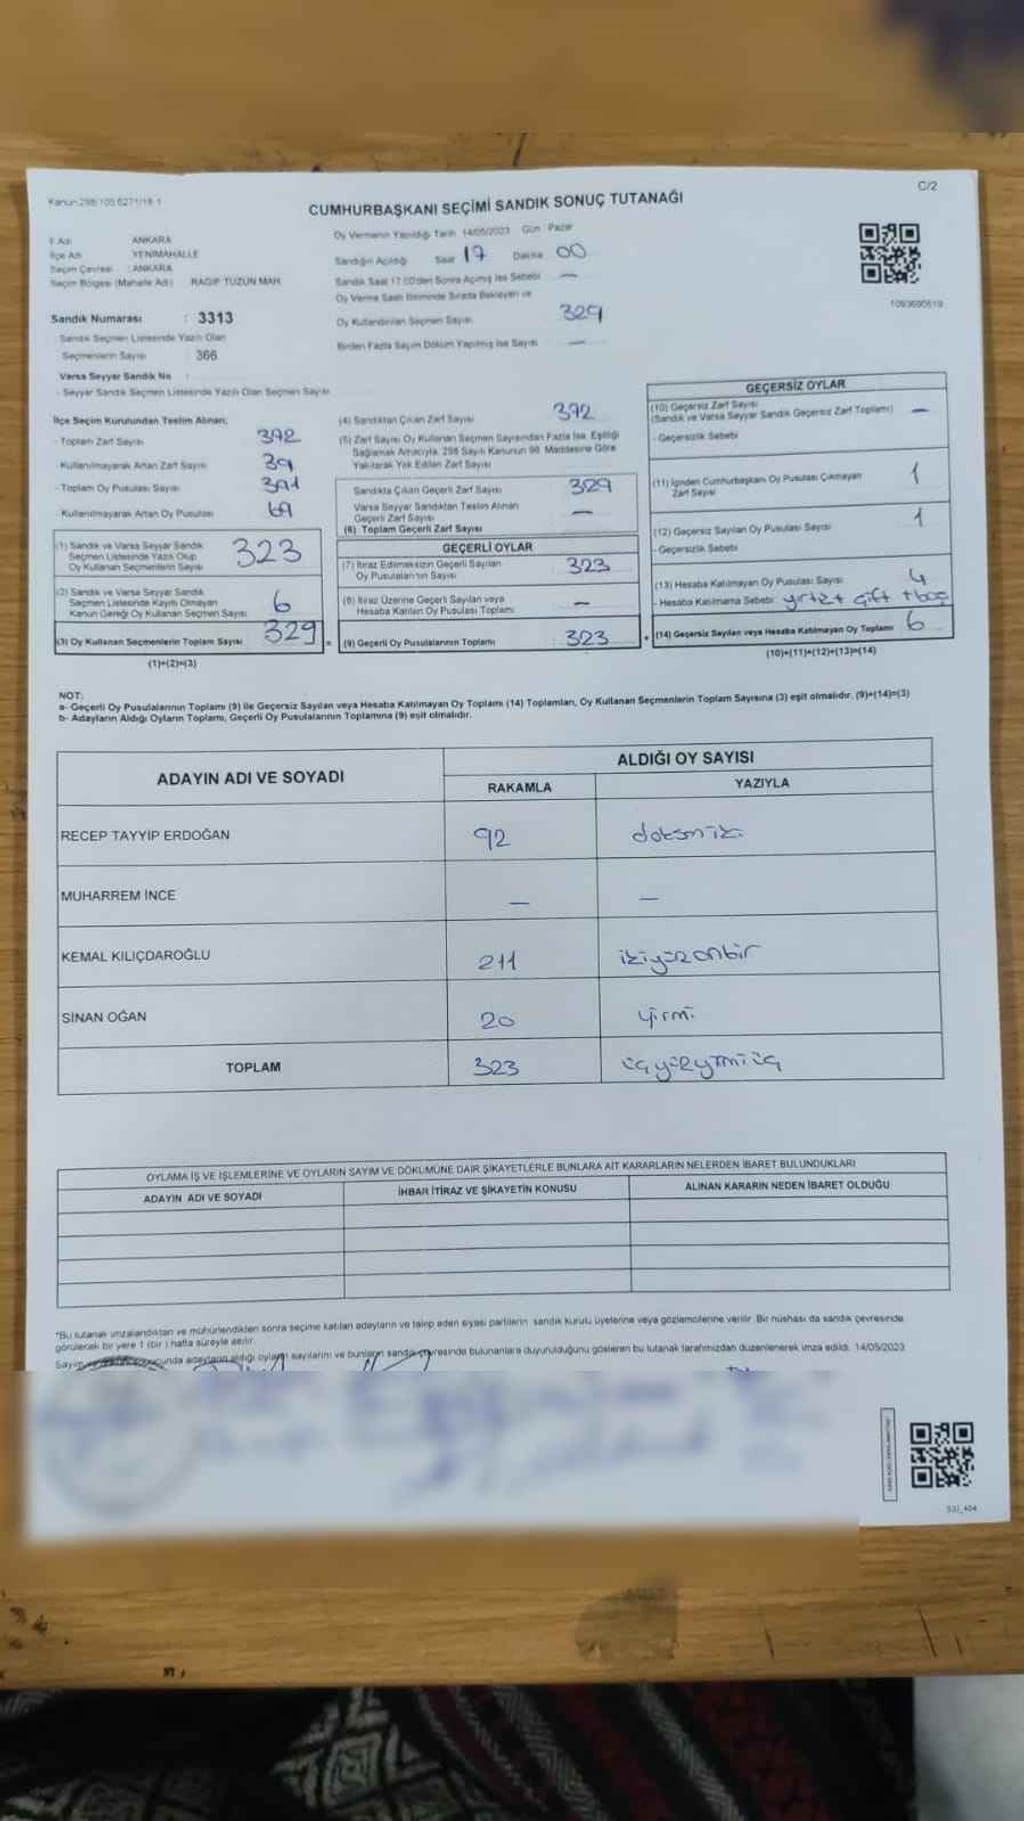 Kanun 298/105 6271/18-1
C/2
CUMHURBAŞKANI SEÇİMİ SANDIK SONUÇ TUTANAĞI
İl Adı ANKARA
İlçe Adı YENİMAHALLE
Seçim Çevresi : ANKARA
Seçim Bölgesi (Mahalle Adı) RAGIP TÜZÜN MAH.
Sandık Numarası : 3313
Sandık Seçmen Listesinde Yazılı Olan
Seçmenlerin Sayısı 366
Varsa Seyyar Sandık No :
- Seyyar Sandık Seçmen Listesinde Yazılı Olan Seçmen Sayısı
Oy Vermenin Yapıldığı Tarih 14/05/2023 Gün Pazar
Sandığın Açıldığı Saat 17 Dakika 00
Sandık Saat 17:00'den Sonra Açılmış İse Sebebi —
Oy Verme Saati Bitiminde Sırada Bekleyen ve
Oy Kullandırılan Seçmen Sayısı 329
Birden Fazla Seçim Döküm Yapılmış İse Sayısı —
1093690619
İlçe Seçim Kurulundan Teslim Alınan;
- Toplam Zarf Sayısı 392
- Kullanılmayarak Artan Zarf Sayısı 39
- Toplam Oy Pusulası Sayısı 391
- Kullanılmayarak Artan Oy Pusulası 69
(1) Sandık ve Varsa Seyyar Sandık
Seçmen Listesinde Yazılı Olup
Oy Kullanan Seçmenlerin Sayısı 323
(2) Sandık ve Varsa Seyyar Sandık
Seçmen Listesinde Kayıtlı Olmayan
Kanun Gereği Oy Kullanan Seçmen Sayısı 6
(3) Oy Kullanan Seçmenlerin Toplam Sayısı 329
(1)+(2)=(3)
(4) Sandıktan Çıkan Zarf Sayısı 392
(5) Zarf Sayısı Oy Kullanan Seçmen Sayısından Fazla İse, Eşitliği
Sağlamak Amacıyla, 298 Sayılı Kanunun 98. Maddesine Göre
Yakılarak Yok Edilen Zarf Sayısı
Sandıkta Çıkan Geçerli Zarf Sayısı 329
Varsa Seyyar Sandıktan Teslim Alınan
Geçerli Zarf Sayısı —
(6) Toplam Geçerli Zarf Sayısı
GEÇERLİ OYLAR
(7) İtiraz Edilmeksizin Geçerli Sayılan
Oy Pusulalarının Sayısı 323
(8) İtiraz Üzerine Geçerli Sayılan veya
Hesaba Katılan Oy Pusulası Toplamı —
= (9) Geçerli Oy Pusulalarının Toplamı 323
GEÇERSİZ OYLAR
(10) Geçersiz Zarf Sayısı
(Sandık ve Varsa Seyyar Sandık Geçersiz Zarf Toplamı) —
- Geçersizlik Sebebi
(11) İçinden Cumhurbaşkanı Oy Pusulası Çıkmayan
Zarf Sayısı 1
(12) Geçersiz Sayılan Oy Pusulası Sayısı 1
- Geçersizlik Sebebi
(13) Hesaba Katılmayan Oy Pusulası Sayısı 4
- Hesaba Katılmama Sebebi yırtık çift + boş
+ (14) Geçersiz Sayılan veya Hesaba Katılmayan Oy Toplamı 6
(10)+(11)+(12)+(13)=(14)
NOT:
a- Geçerli Oy Pusulalarının Toplamı (9) ile Geçersiz Sayılan veya Hesaba Katılmayan Oy Toplamı (14) Toplamları, Oy Kullanan Seçmenlerin Toplam Sayısına (3) eşit olmalıdır. (9)+(14)=(3)
b- Adayların Aldığı Oyların Toplamı, Geçerli Oy Pusulalarının Toplamına (9) eşit olmalıdır.
ADAYIN ADI VE SOYADI
ALDIĞI OY SAYISI
RAKAMLA YAZIYLA
RECEP TAYYİP ERDOĞAN 92 doksniki
MUHARREM İNCE — —
KEMAL KILIÇDAROĞLU 211 ikiyüzonbir
SİNAN OĞAN 20 yirmi
TOPLAM 323 üçyüzyrmiüç
OYLAMA İŞ VE İŞLEMLERİNE VE OYLARIN SAYIM VE DÖKÜMÜNE DAİR ŞİKAYETLERLE BUNLARA AİT KARARLARIN NELERDEN İBARET BULUNDUKLARI
ADAYIN ADI VE SOYADI İHBAR İTİRAZ VE ŞİKAYETİN KONUSU ALINAN KARARIN NEDEN İBARET OLDUĞU
*Bu tutanak imzalandıktan ve mühürlendikten sonra seçime katılan adayların ve talep eden siyasi partilerin sandık kurulu üyelerine veya gözlemcilerine verilir. Bir nüshası da sandık çevresinde
görülecek bir yere 1 (bir) hafta süreyle asılır.
Sayım sonucunda adayların aldığı oyların sayılarını ve bunların sandık çevresinde bulunanlara duyurulduğunu gösteren bu tutanak tarafımızdan düzenlenerek imza edildi. 14/05/2023